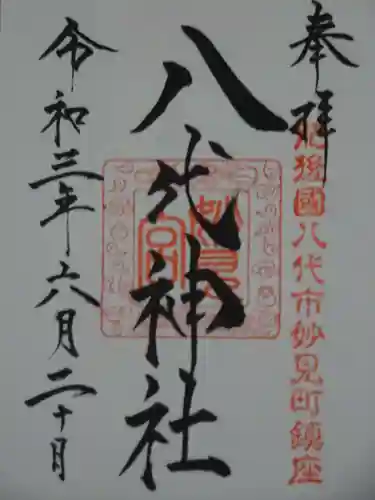 奉拝
肥後國八代市妙見町鎮座
八代神社
妙見宮
令和三年六月二十月